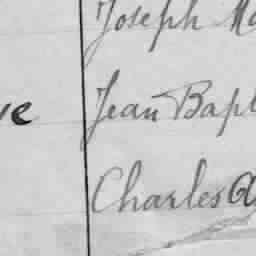 Joseph Ma
ve Jean Bapt
Charles A